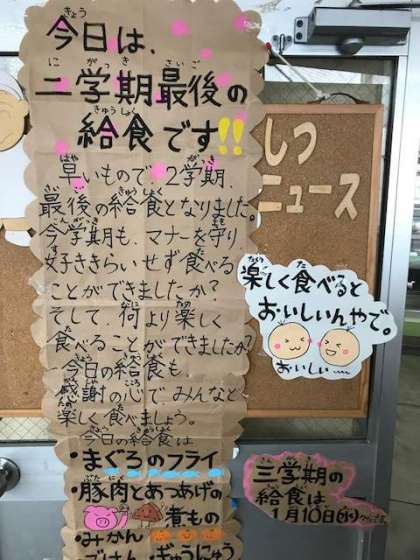 今日は、
二学期最後の
給食です!!
早いもので、2学期、
最後の給食となりました。
今学期も、マナーを守り、
好ききらいせず食べる
ことができましたか?
そして、何より楽しく
食べることができましたか?
今日の給食も、
感謝の心で、みんなと
楽しく食べましょう。
今日の給食は
・まぐろのフライ
・豚肉とあつあげの
煮もの
・みかん
・ごはん ・ぎゅうにゅう
しつ
ニュース
楽しく食べると
おいしいんやで。
おいしい
三学期の
給食は
1月10日(水)